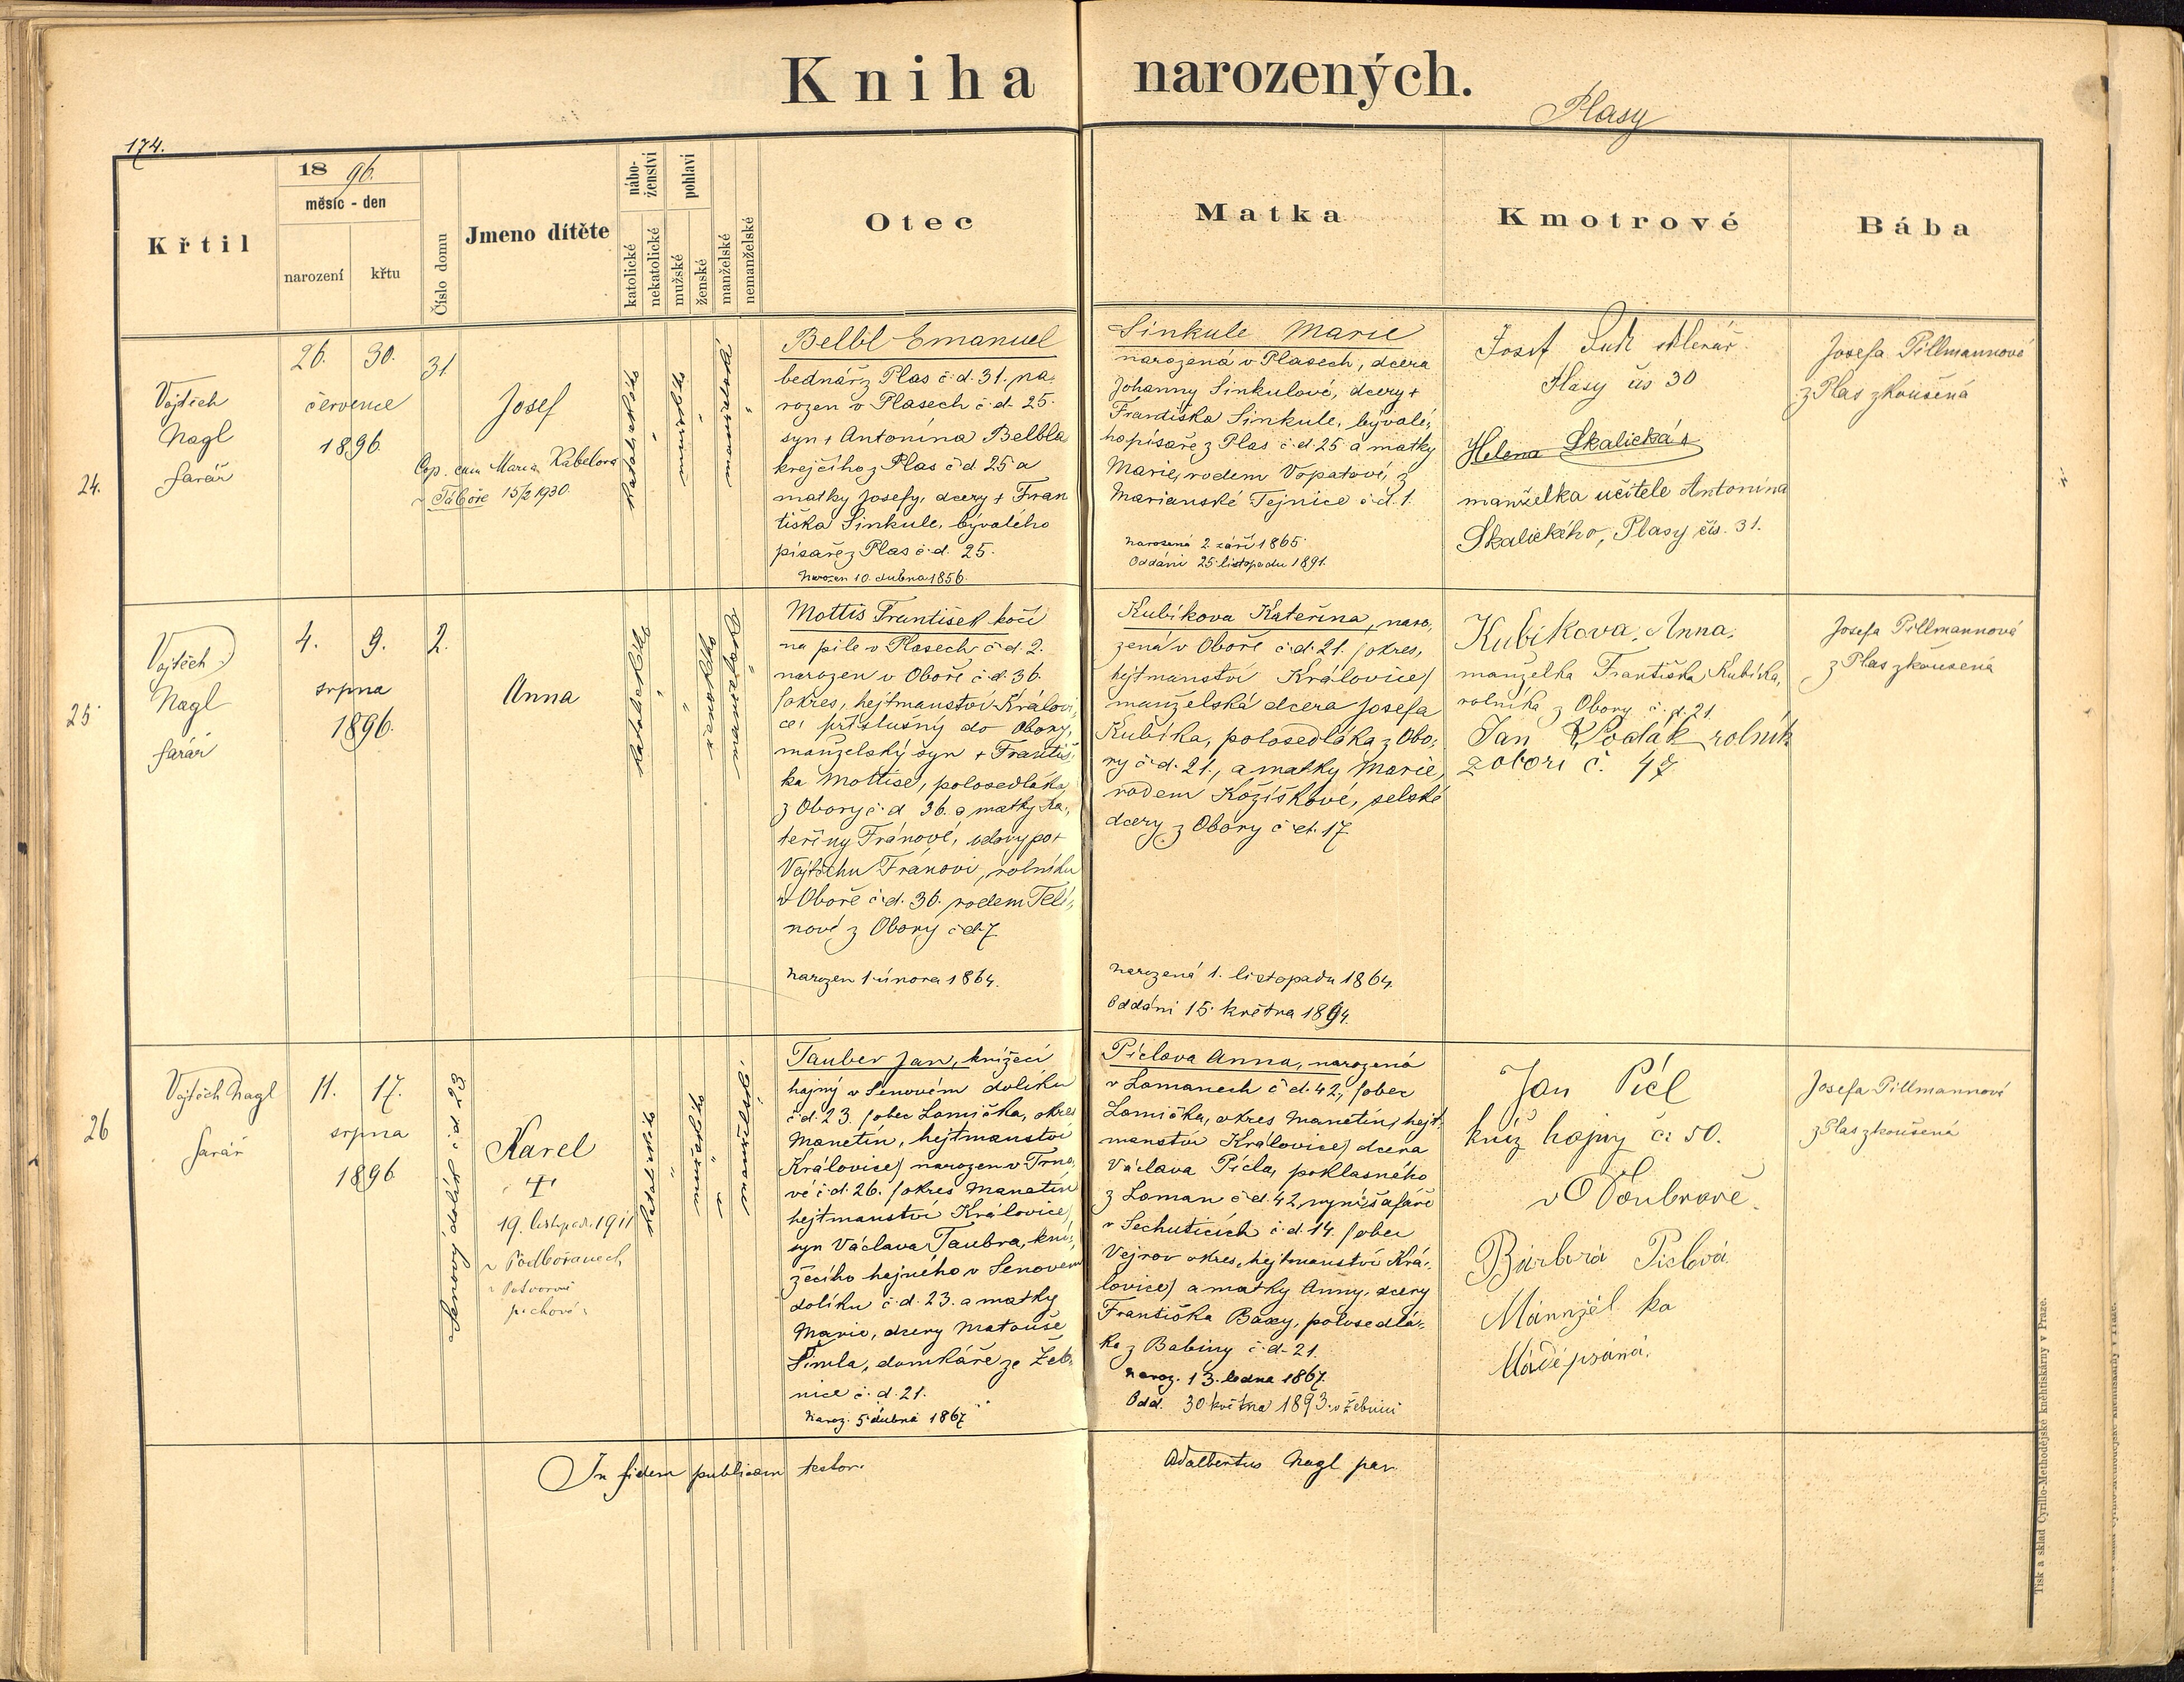 Kniha narozených.
Plasy
174.
Křtil
1896.
měsíc - den
narození
křtu
Číslo domu
Jmeno dítěte
nábo-
ženství
katolické
nekatolické
pohlaví
mužské
ženské
manželské
nemanželské
Otec
Matka
Kmotrové
Bába
24.
Vojtěch
Nagl
farář
26. 30.
července
1896.
31
Josef
Cop. cum Maria Kabelova
v Táboře 15/2 1930.
katolické
mužské
manželské
Belbl Emanuel
bednář z Plas č. d. 31. na-
rozen v Plasech č. d. 25.
syn + Antonína Belbla
krejčího z Plas č d. 25 a
matky Josefy, dcery + Fran
tiška Sinkule, bývalého
písaře z Plas č. d. 25.
Narozen 10. dubna 1856.
Sinkule Marie
narozená v Plasech, dcera
Johanny Sinkulové, dcery +
Františka Sinkule, bývalé-
ho písaře z Plas č. d. 25 a matky
Marie, rodem Vopatové, z
Marianské Tejnice č. d. 1.
Narozená 2. září 1865.
Oddáni 25. listopadu 1891.
Josef
Plasy čís 30
Helena Skalická
manželka učitele Antonína
Skalického, Plasy čís. 31.
Josefa Pillmannová
z Plas zkoušená
25
Vojtěch
Nagl
farář
4. 9.
srpna
1896.
2.
Anna
katolické
ženské
manželské
Mottis František kočí
na pile v Plasech č. d. 2.
narozen v Oboře č. d. 36.
/okres, hejtmanství Královi-
ce, příslušný do Obory,
manželský syn + Františ-
ka Mottise, polosedláka
z Obory č. d 36. a matky Ka-
teřiny Fránové, vdovy po +
Vojtěchu Fránovi, rolníku
v Oboře č. d. 36. rodem Telí-
nové z Obory č d 7
Narozen 1. února 1864.
Kubíkova Kateřina, naro-
zená v Oboře č. d. 21. /okres,
hejtmanství Královice/
manželská dcera Josefa
Kubíka, polosedláka z Obo-
ry č. d. 21., a matky Marie,
rodem Kožíškové, selské
dcery z Obory č. d. 17.
Narozená 1. listopadu 1864.
Oddáni 15. května 1894.
Kubikova, Anna,
manželka Františka Kubíka,
rolníka z Obory č. d. 21.
Jan Vodák rolník
z obori č. 47
Josefa Pillmannová
z Plas zkoušená
26
Vojtěch Nagl
farář
11. 17.
srpna
1896
Senový dolík č. d. 23
Karel
+
19. listopadu 1911
v Podbořanech
katolické
mužské
manželské
Tauber Jan, knížecí
hajný v Senovém dolíku
č. d. 23. /obec Lomička, okres
Manetín, hejtmanství
Královice/ narozen v Trno-
vé č. d. 26. /okres Manetín
hejtmanství Královice/
syn Václava Taubra, kní-
žecího hajného v Senovém
dolíku č. d. 23. a matky
Marie, dcery Matouše
Šimla, domkáře ze Žeb-
nice č. d. 21.
Naroz. 5. dubna 1867
Píclova Anna, narozená
v Lomanech č. d. 42., /obec
Lomička, okres Manetín, hejt-
manství Královice/ dcera
Václava Pícla, poklasného
z Loman č. d. 42, nyní šafáře
v Sechuticích č. d. 14. /obec
Vejrov okres, hejtmanství Krá-
lovice/ a matky Anny, dcery
Františka Baxy, polosedlá-
ka z Babiny č. d. 21.
Naroz. 13. ledna 1867.
Odd. 30 května 1893 v Žebnici
Jan Picl
kníž hajny č: 50.
v Doubravě.
Barbora Piclová
Mannžel ka
Josefa Pillmannová
z Plas zkoušená
In fidem publicam testor.
Adalbertus Nagl par.
Tisk a sklad Cyrillo-Methodějské kněhtiskárny v Praze.